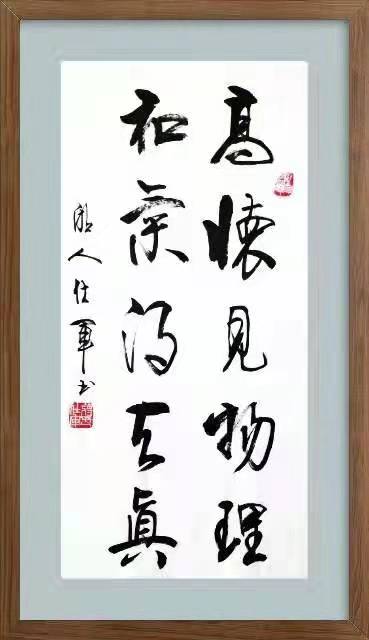 高懷見物理
和氣得天眞
人仕軍书